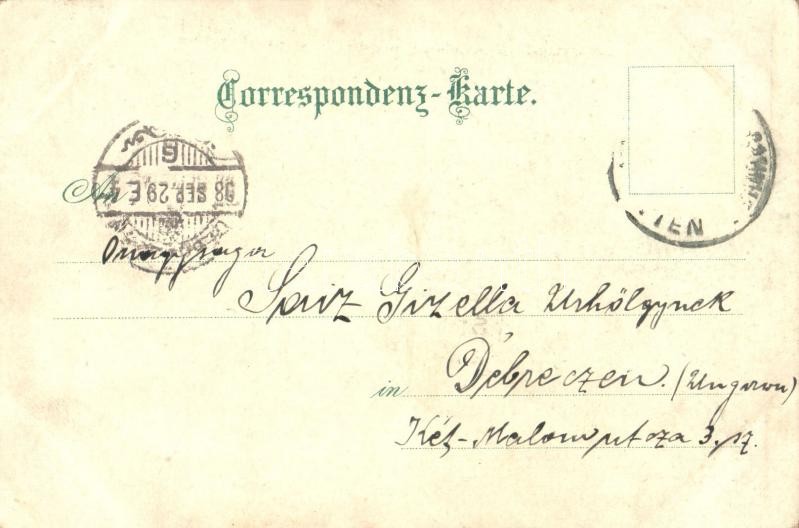 Correspondenz-Karte.
98 SEP. 29 E
An
Onagysaga
Saiz Gizella Urhölgynek
in Debreczen. (Ungarn)
Két-Malom utcza 3. sz.